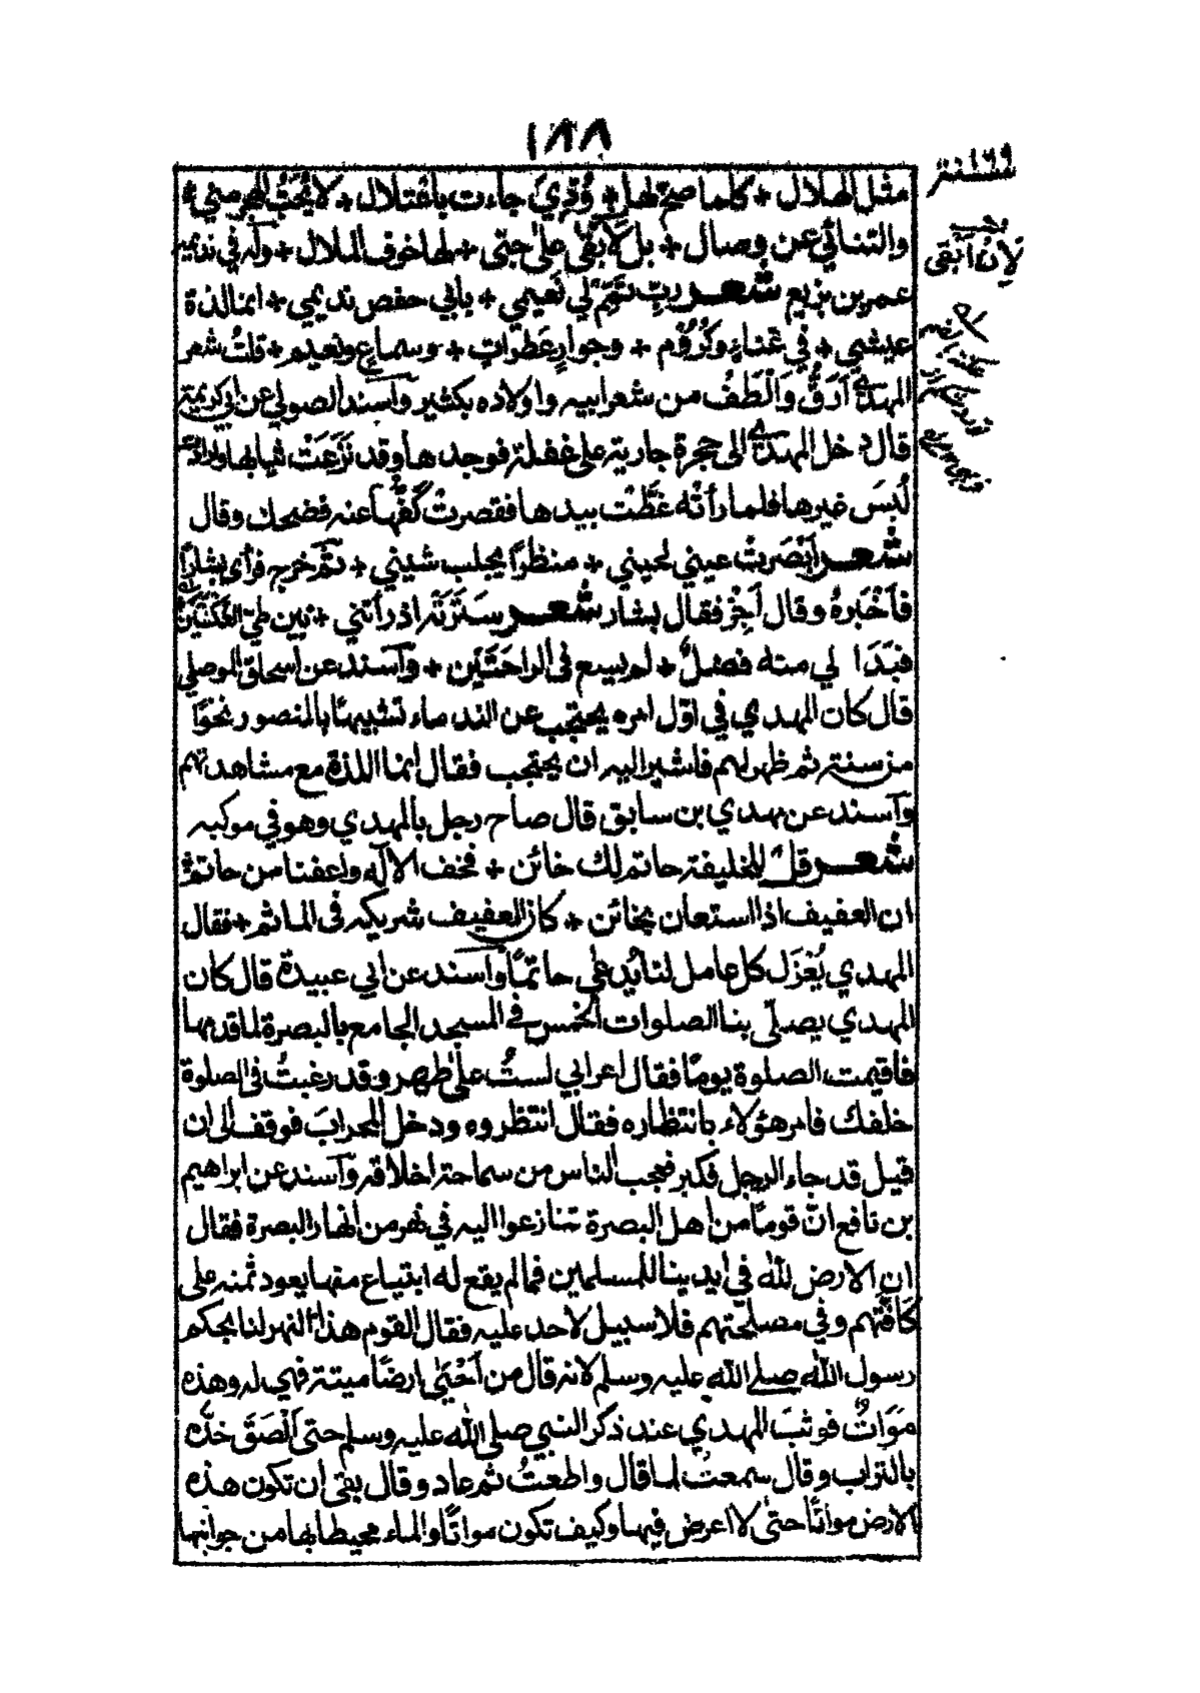 ١٨٨
سنة ١٦٩
مثل الهلال + كلما صح لها + وُدّي جاءت باعتلال + لا يُحِبّ الهجر مني +
والتنائي عن وصال + بل لابقى على حبّى + لها خوف الملال + وله في نديمه
عمر بن بزيع شعر ربّ تمّم لي نعيمي + بأبي حفص نديمي + انما لذة
عيشي + في غناءٍ وكُرُوم + وجوارٍ عطراتٍ + وسماعٍ ونعيم + قلت شعر
المهدي اَرَقُّ وَاَلْطَفُ من شعر ابيه واولاده بكثير وآسند الصولي عن ابي كريمة
قال دخل المهدي الى حجرة جارية على غفلة فوجدها وقد نَزَعَتْ ثيابها وارادت
لُبسَ غيرها فلما رأته غطّت بيدها فقصرت كفّها عنه فضحك وقال
شعر اَبْصَرتْ عيني لحيني + منظرًا يجلب شيني + ثم خرج فرأى بشارًا
فاَخْبَرهُ وقال اَجِزْ فقال بشار شعر سَتَرَتَه اذ رأتني + بين طيّ العُكْنَتَيْنِ
فبَدَا لي منه فضلٌ + لم يسع فى الراحَتَيْن + وآسند عن اسحاق الموصلي
قال كان المهدي في اوّل امره يحتجب عن الندماء تشبيهًا بالمنصور نحوًا
من سنة ثم ظهر لهم فاشير اليه ان يحتجب فقال انما اللذة مع مشاهدتهم
وآسند عن مهدي بن سابق قال صاح رجل بالمهدي وهو في موكبه
شعر قل للخليفة حاتم لك خائن + فخف الاله واعفنا من حاتم +
ان العفيف اذا استعان بخائن + كان العفيف شريكه فى المأثم + فقال
المهدي يُعْزَل كل عامل لنا يُدعى حاتمًا وآسند عن ابي عبيدة قال كان
المهدي يصلّي بنا الصلوات الخمس في المسجد الجامع بالبصرة لما قدمها
فاقيمت الصلوة يومًا فقال اعرابي لستُ على طهر وقد رغبتُ فى الصلوة
خلفك فامر هؤلاء بانتظاره فقال انتظروه ودخل المحرابَ فوقف الى ان
قيل قد جاء الرجل فكبر فعجب الناس من سماحة اخلاقه وآسند عن ابراهيم
بن نافع انّ قومًا من اهل البصرة تنازعوا اليه في نهر من انهار البصرة فقال
ان الارض لله في ايدينا للمسلمين فما لم يقع له ابتياع منها يعود ثمنه على
كافتهم وفي مصلحتهم فلا سبيل لاحد عليه فقال القوم هذا النهر لنا بحكم
رسول الله صلى الله عليه وسلم لانه قال من اَحْيَى ارضًا ميتة فهي له وهذه
مَوَاتٌ فوثبَ المهدي عند ذكر النبي صلى الله عليه وسلم حتى اَلْصَقَ خدّه
بالتراب وقال سمعتُ لما قال واطعتُ ثم عاد وقال بقى ان تكون هذه
الارض مواتًا حتى لا اعرض فيها وكيف تكون مواتًا والماء محيط بها من جوانبها
لِاَنْ اَبْقَى